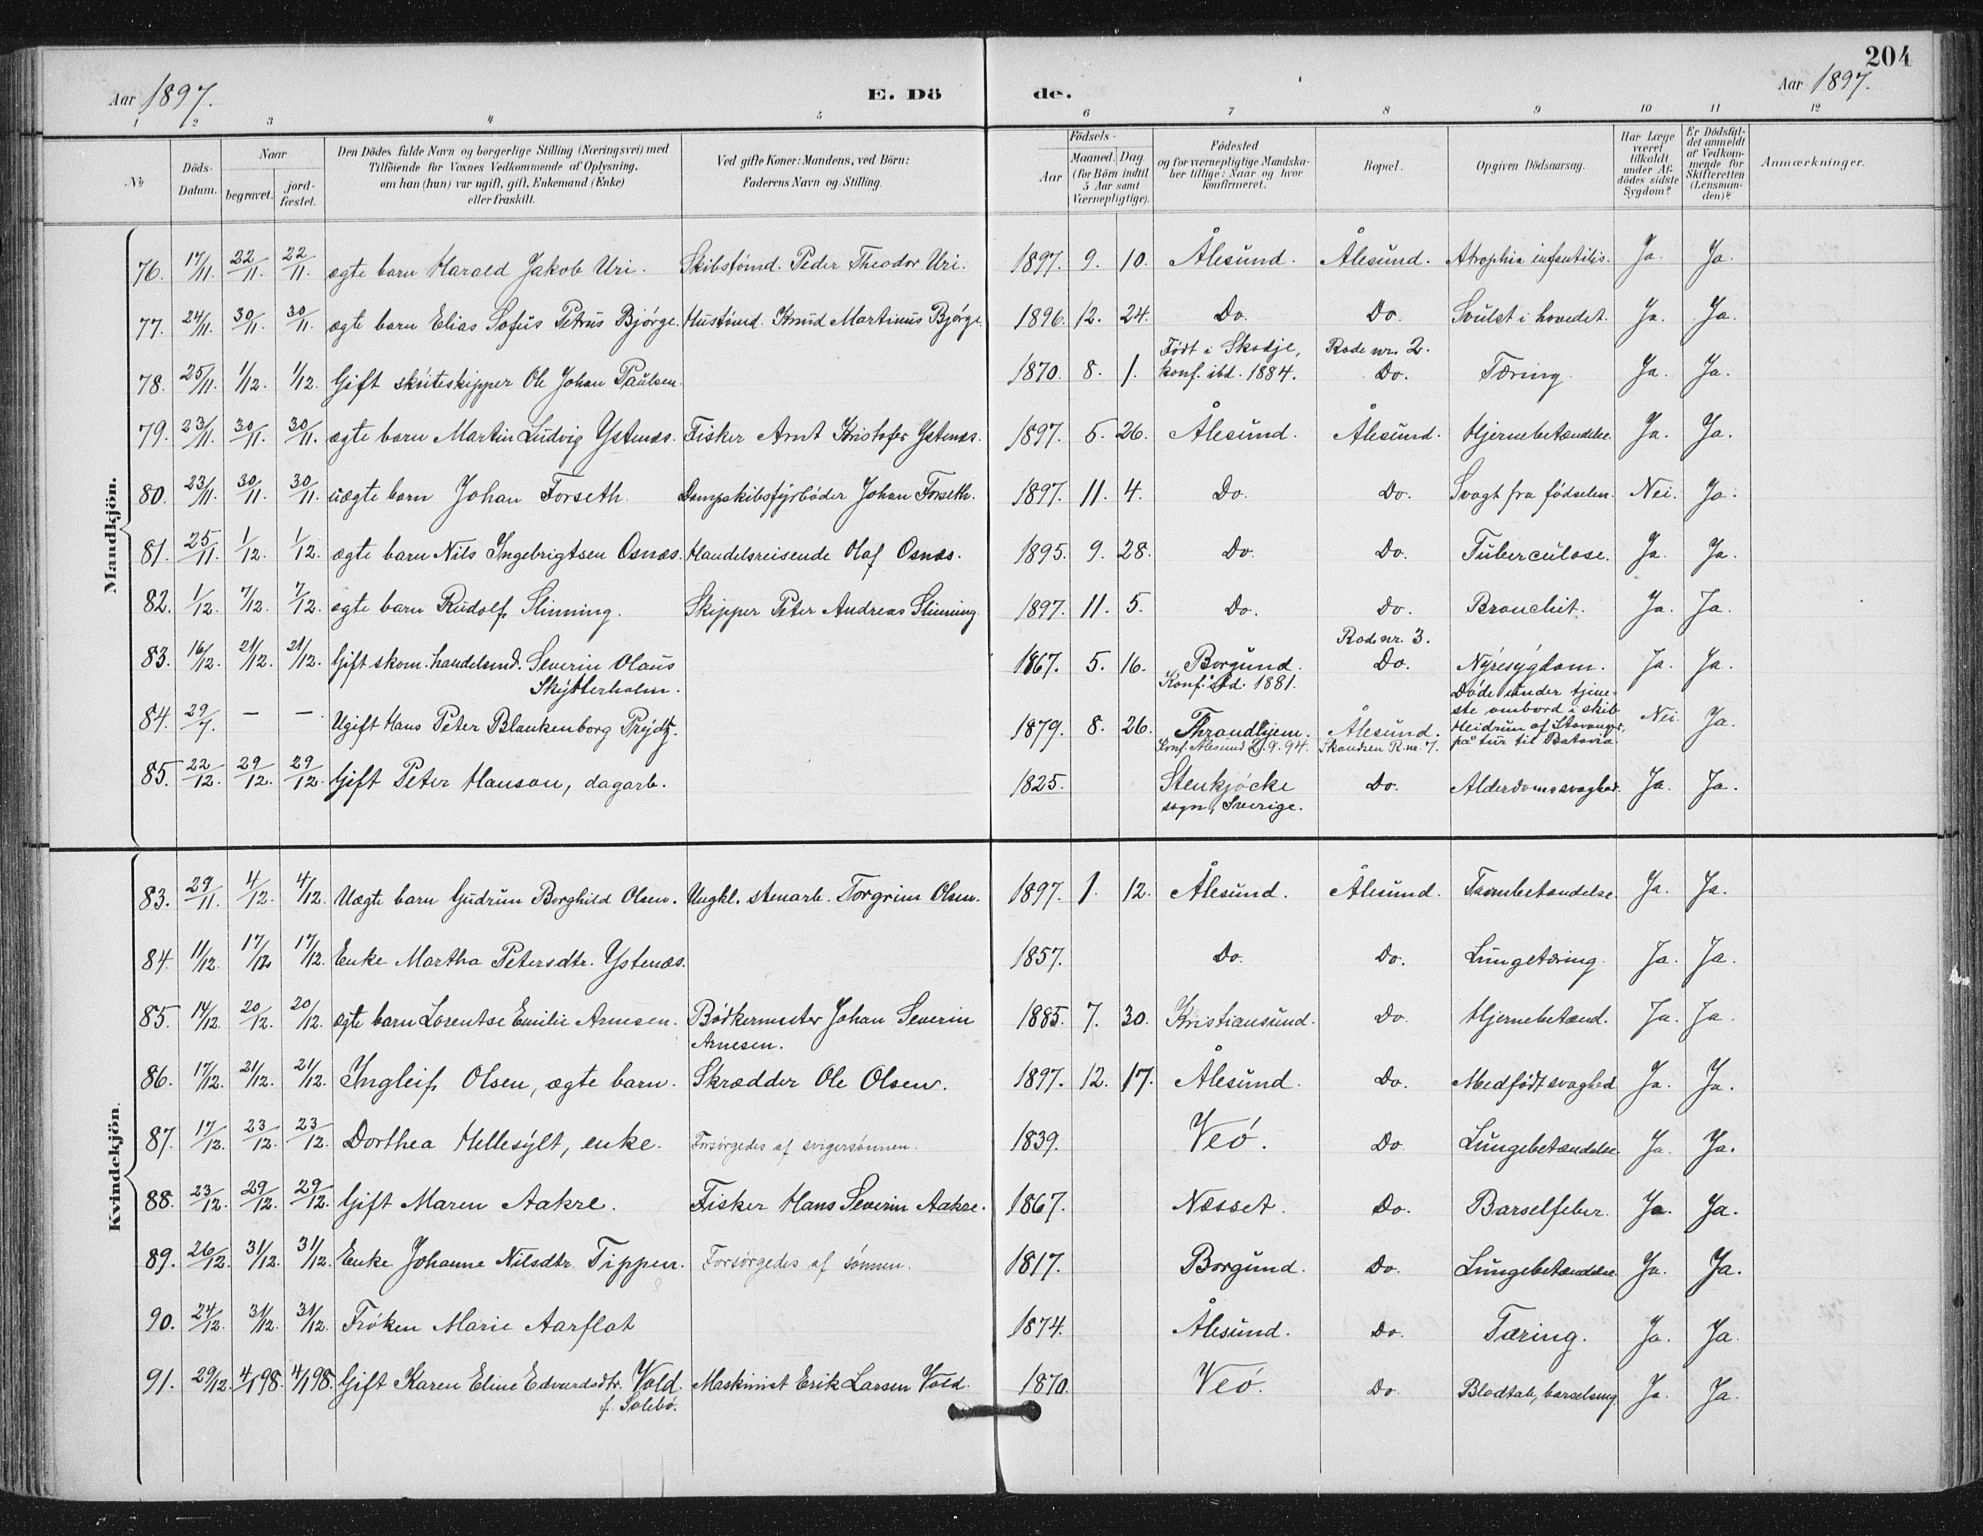 204
Aar 1897. E. Dö de. Aar 1897.
1 2 3 4 5 6 7 8 9 10 11 12
No Döds-Datum. Naar begravet. jord-fæstet. Den Dödes fulde Navn og borgerlige Stilling (Næringsvei) med Tilföiende for Voxnes Vedkommende af Oplysning, om han (hun) var ugift, gift, Enkemand (Enke) eller fraskilt. Ved gifte Koner: Mandens, ved Börn: Faderens Navn og Stilling. Födsels- Aar Maaned. Dag. (for Börn indtil 5 Aar samt Værnepligtige). Födested og for værnepligtige Mandska-ber tillige: Naar og hvor konfirmeret. Bopæl. Opgiven Dödsaarsag. Har Læge været tilkaldt under Af-dödes sidste Sygdom? Er Dödsfal-det anmeldt af Vedkom-mende for Skifteretten (Lensman-den)? Anmærkninger.
Mandkjön.
76. 17/11. 22/11. 22/11. ægte barn Harald Jakob Uri. Skibstømd. Peder Theodor Uri. 1897. 9. 10. Ålesund. Ålesund. Atrophia infantilis. Ja. Ja.
77. 24/11. 30/11. 30/11. ægte barn Elias Sofus Petrus Bjørge. Hustømd. Knud Martinus Bjørge. 1896. 12. 24. Do. Do. Svulst i hovedet. Ja. Ja.
78. 25/11. 1/12. 1/12. Gift skøiteskipper Ole Johan Paulsen. 1870. 8. 1. Født i Skodje, konf. ibd. 1884. Rode nr. 2. Do. Tæring. Ja. Ja.
79. 23/11. 30/11. 30/11. ægte barn Martin Ludvig Ystenæs. Fisker Arnt Kristofer Ystenæs. 1897. 5. 26. Ålesund. Ålesund. Hjernebetændelse. Ja. Ja.
80. 23/11. 30/11. 30/11. uægte barn Johan Forseth. Dampskibsfyrbøder Johan Forseth. 1897. 11. 4. Do. Do. Svagt fra fødselen. Nei. Ja.
81. 25/11. 1/12. 1/12. ægte barn Nils Ingebrigtsen Osnæs. Handelsreisende Olaf Osnæs. 1895. 9. 28. Do. Do. Tuberculose. Ja. Ja.
82. 1/12. 7/12. 7/12. ægte barn Rudolf Slinning. Skipper Peter Andreas Slinning 1897. 11. 5. Do. Do. Bronchit. Ja. Ja.
83. 16/12. 21/12. 21/12. Gift skom. handelsmd. Severin Olaus 1867. 5. 16. Borgund. Rode nr. 3. Do. Nyresygdom. Ja. Ja.
Skytterholm. Konf. ibd. 1881.
84. 29/7. — — Ugift Hans Peter Blankenborg Prydz. 1879. 8. 26. Throndhjem. Konf. Ålesund 2/9. 94. Ålesund. Skandsen R. nr. 7. Døde under tjene-ste ombord i skib Heidrun af Stavanger, på tur til Batavia. Nei. Ja.
85. 22/12. 29/12. 29/12. Gift Peter Hanson, dagarb. 1825. Stenkjøcke sogn, Sverige. Do. Alderdomssvaghed. Ja. Ja.
Kvindekjön.
83. 29/11. 4/12. 4/12. Uægte barn Gudrun Borghild Olsen. Ungkl. stenarb. Torgrim Olsen. 1897. 1. 12. Ålesund. Ålesund. Tarmbetændelse. Ja. Ja.
84. 11/12. 17/12. 17/12. Enke Martha Petersdtr. Ystenæs. 1857. Do. Do. Lungetæring. Ja. Ja.
85. 14/12. 20/12. 20/12. ægte barn Lorentse Emilie Arnesen. Bødkermester Johan Severin 1885. 7. 30. Kristiansund. Do. Hjernebetænd. Ja. Ja.
Arnesen.
86. 17/12. 21/12. 21/12. Ingleif Olsen, ægte barn. Skrædder Ole Olsen. 1897. 12. 17. Ålesund. Do. Medfødt svaghed. Ja. Ja.
87. 17/12. 23/12. 23/12. Dorthea Hellesylt, enke. Forsørgedes af svigersønnen. 1839. Veø. Do. Lungebetændelse. Ja. Ja.
88. 23/12. 29/12. 29/12. Gift Maren Aakre. Fisker Hans Severin Aakre. 1867. Næsset. Do. Barselfeber. Ja. Ja.
89. 26/12. 31/12. 31/12. Enke Johanne Nilsdtr. Tippen. Forsørgedes af sønnen. 1817. Borgund. Do. Lungebetændelse. Ja. Ja.
90. 24/12. 31/12. 31/12. Frøken Marie Aarflot 1874. Ålesund. Do. Tæring. Ja. Ja.
91. 29/12. 4/1 98. 4/1 98. Gift Karen Eline Edvardsdtr. Vold. Maskinist Erik Larsen Vold. 1870. Veø. Do. Blodtab, barselseng. Ja. Ja.
f. Solebø.